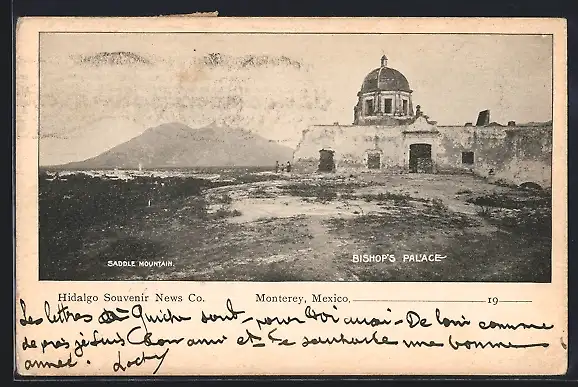 SADDLE MOUNTAIN.
BISHOP'S PALACE
Hidalgo Souvenir News Co. Monterey, Mexico, 19
Les lettres Quichu sont pour toi aussi De loin comme
de près je suis ton ami et te souhaite une bonne
année.